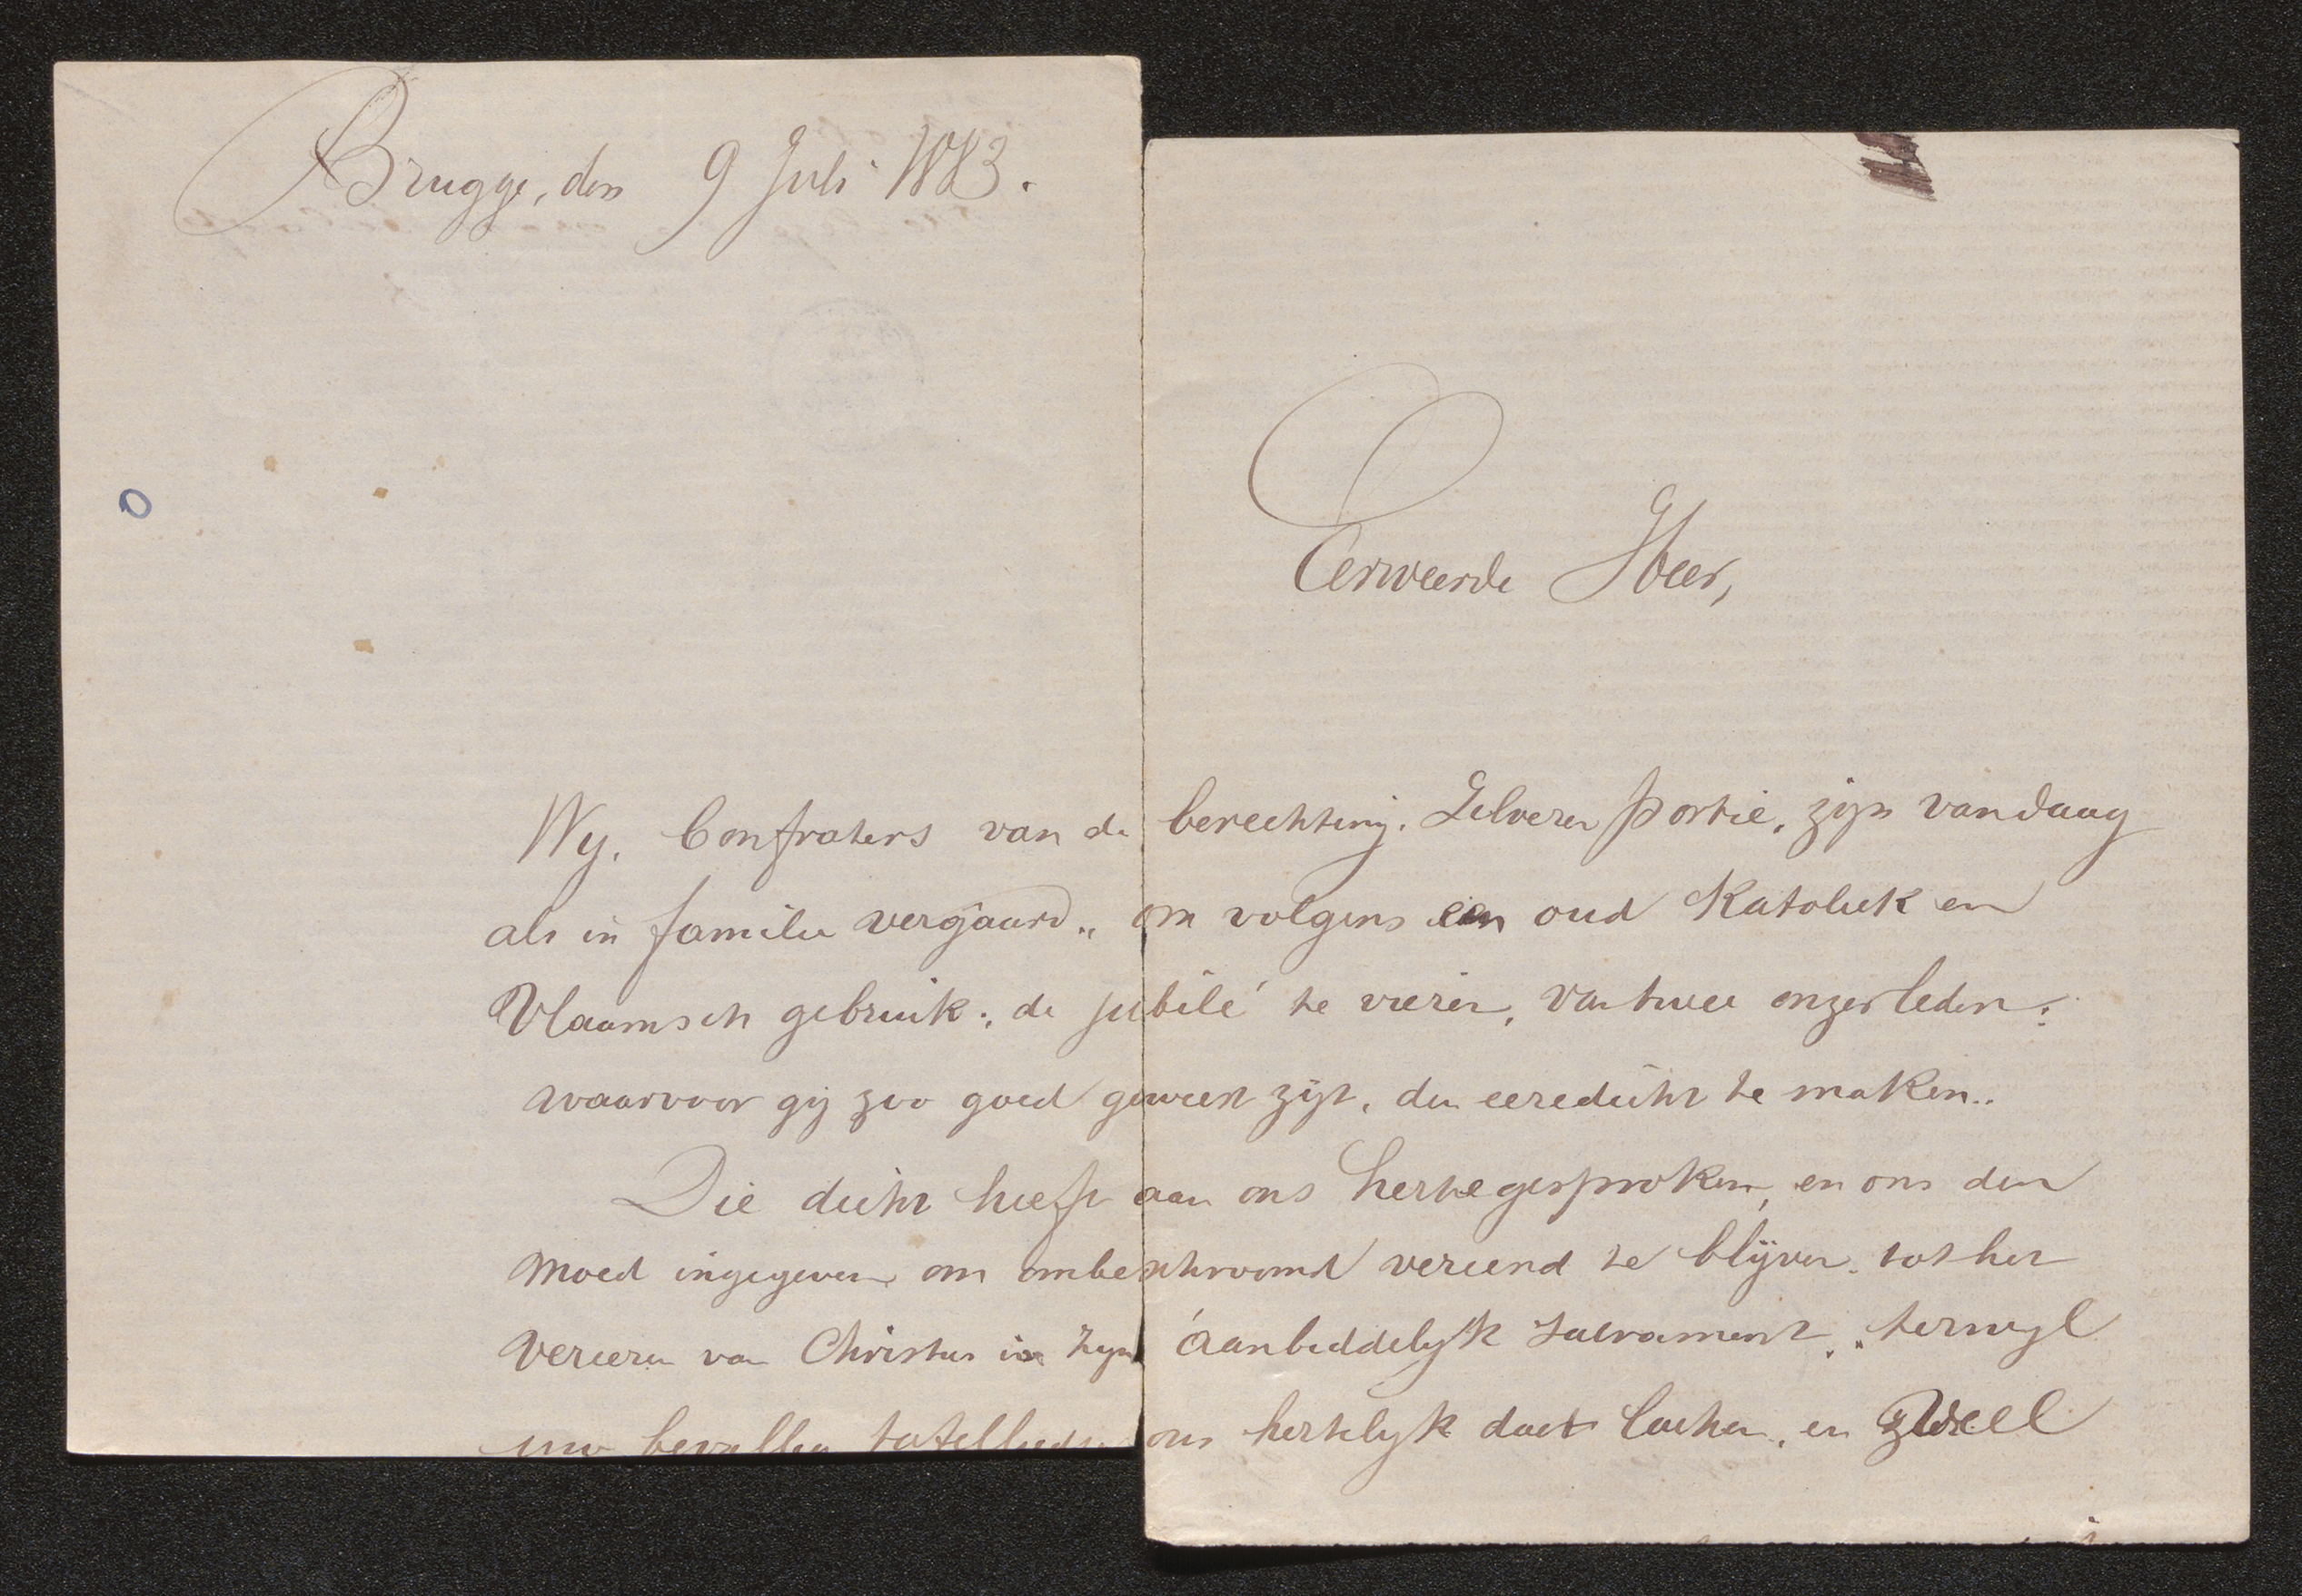 Brugge, den 9 Juli 1883.
Eerweerde Heer,
Wy, Confraters van de berechting. Zelveren portie, zijn vandaag
als in familie vergaard., om volgens een oud Katoliek en
Vlaamsch gebruik, de jubilé te vieren, van twee onzer leden;
waarvoor gij zoo goed geweest zijt, den eeredicht te maken..
Die dicht heeft aan ons herte gesproken, en ons den
moed ingegeven om onbeschroomd vereend te blijven. tot het
vereeren van Christus in zyn aanbiddelyk Sacrament., terwyl
uw bevallig tafelliedje ons hertelyk doet lachen, en zwell